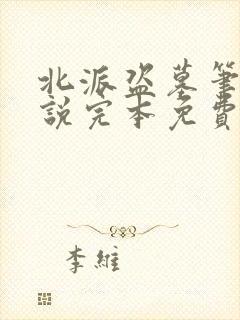 北派盗墓筆
說完本免費
李維